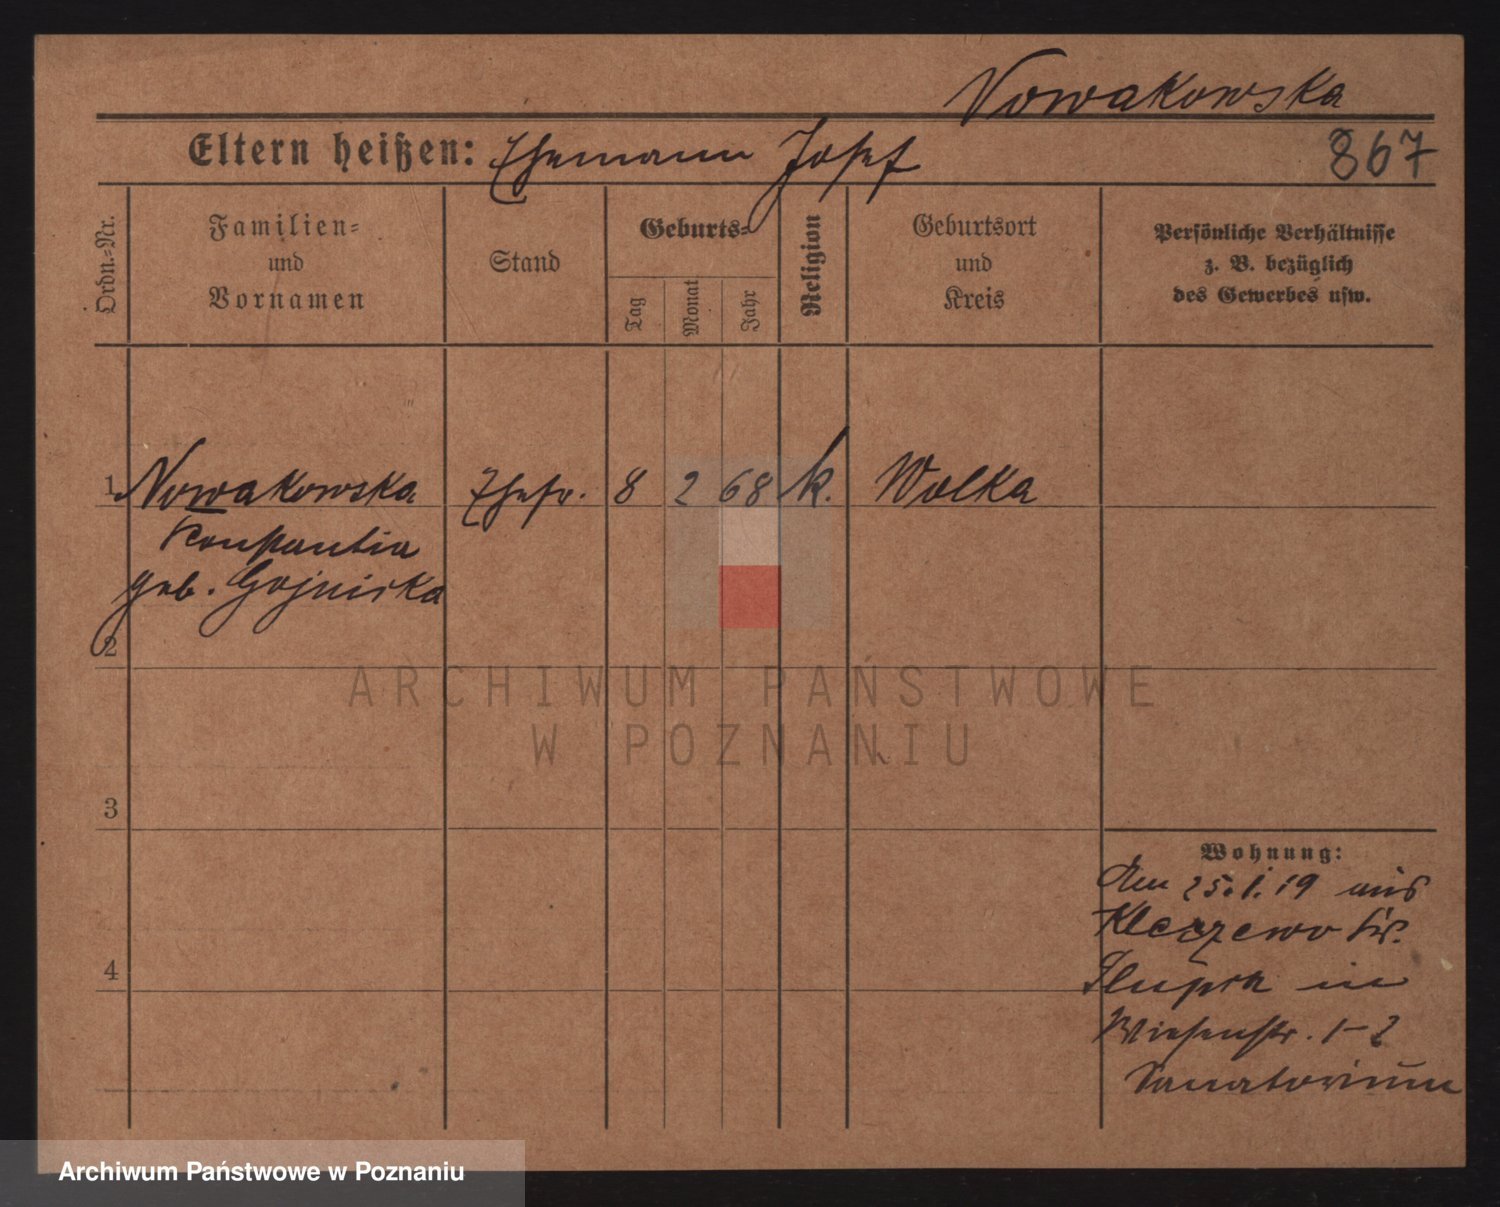 Nowakowska
Eltern heißen: Ehemann Josef
867
Ordn.-Nr.
Familien-
und
Vornamen
Stand
Geburts-
Tag
Monat
Jahr
Religion
Geburtsort
und
Kreis
Persönliche Verhältnisse
z. B. bezüglich
des Gewerbes usw.
1 Nowakowska Ehefr. 8 2 68 k. Wolka
Konstantia
geb. Gojniska
2
ARCHIWUM PAŃSTWOWE
W POZNANIU
3
Wohnung:
Am 25.1.19 aus
Kleczewo Kr.
4
Slupca in
Wiesenstr. 1-2
Sanatorium
Archiwum Państwowe w Poznaniu